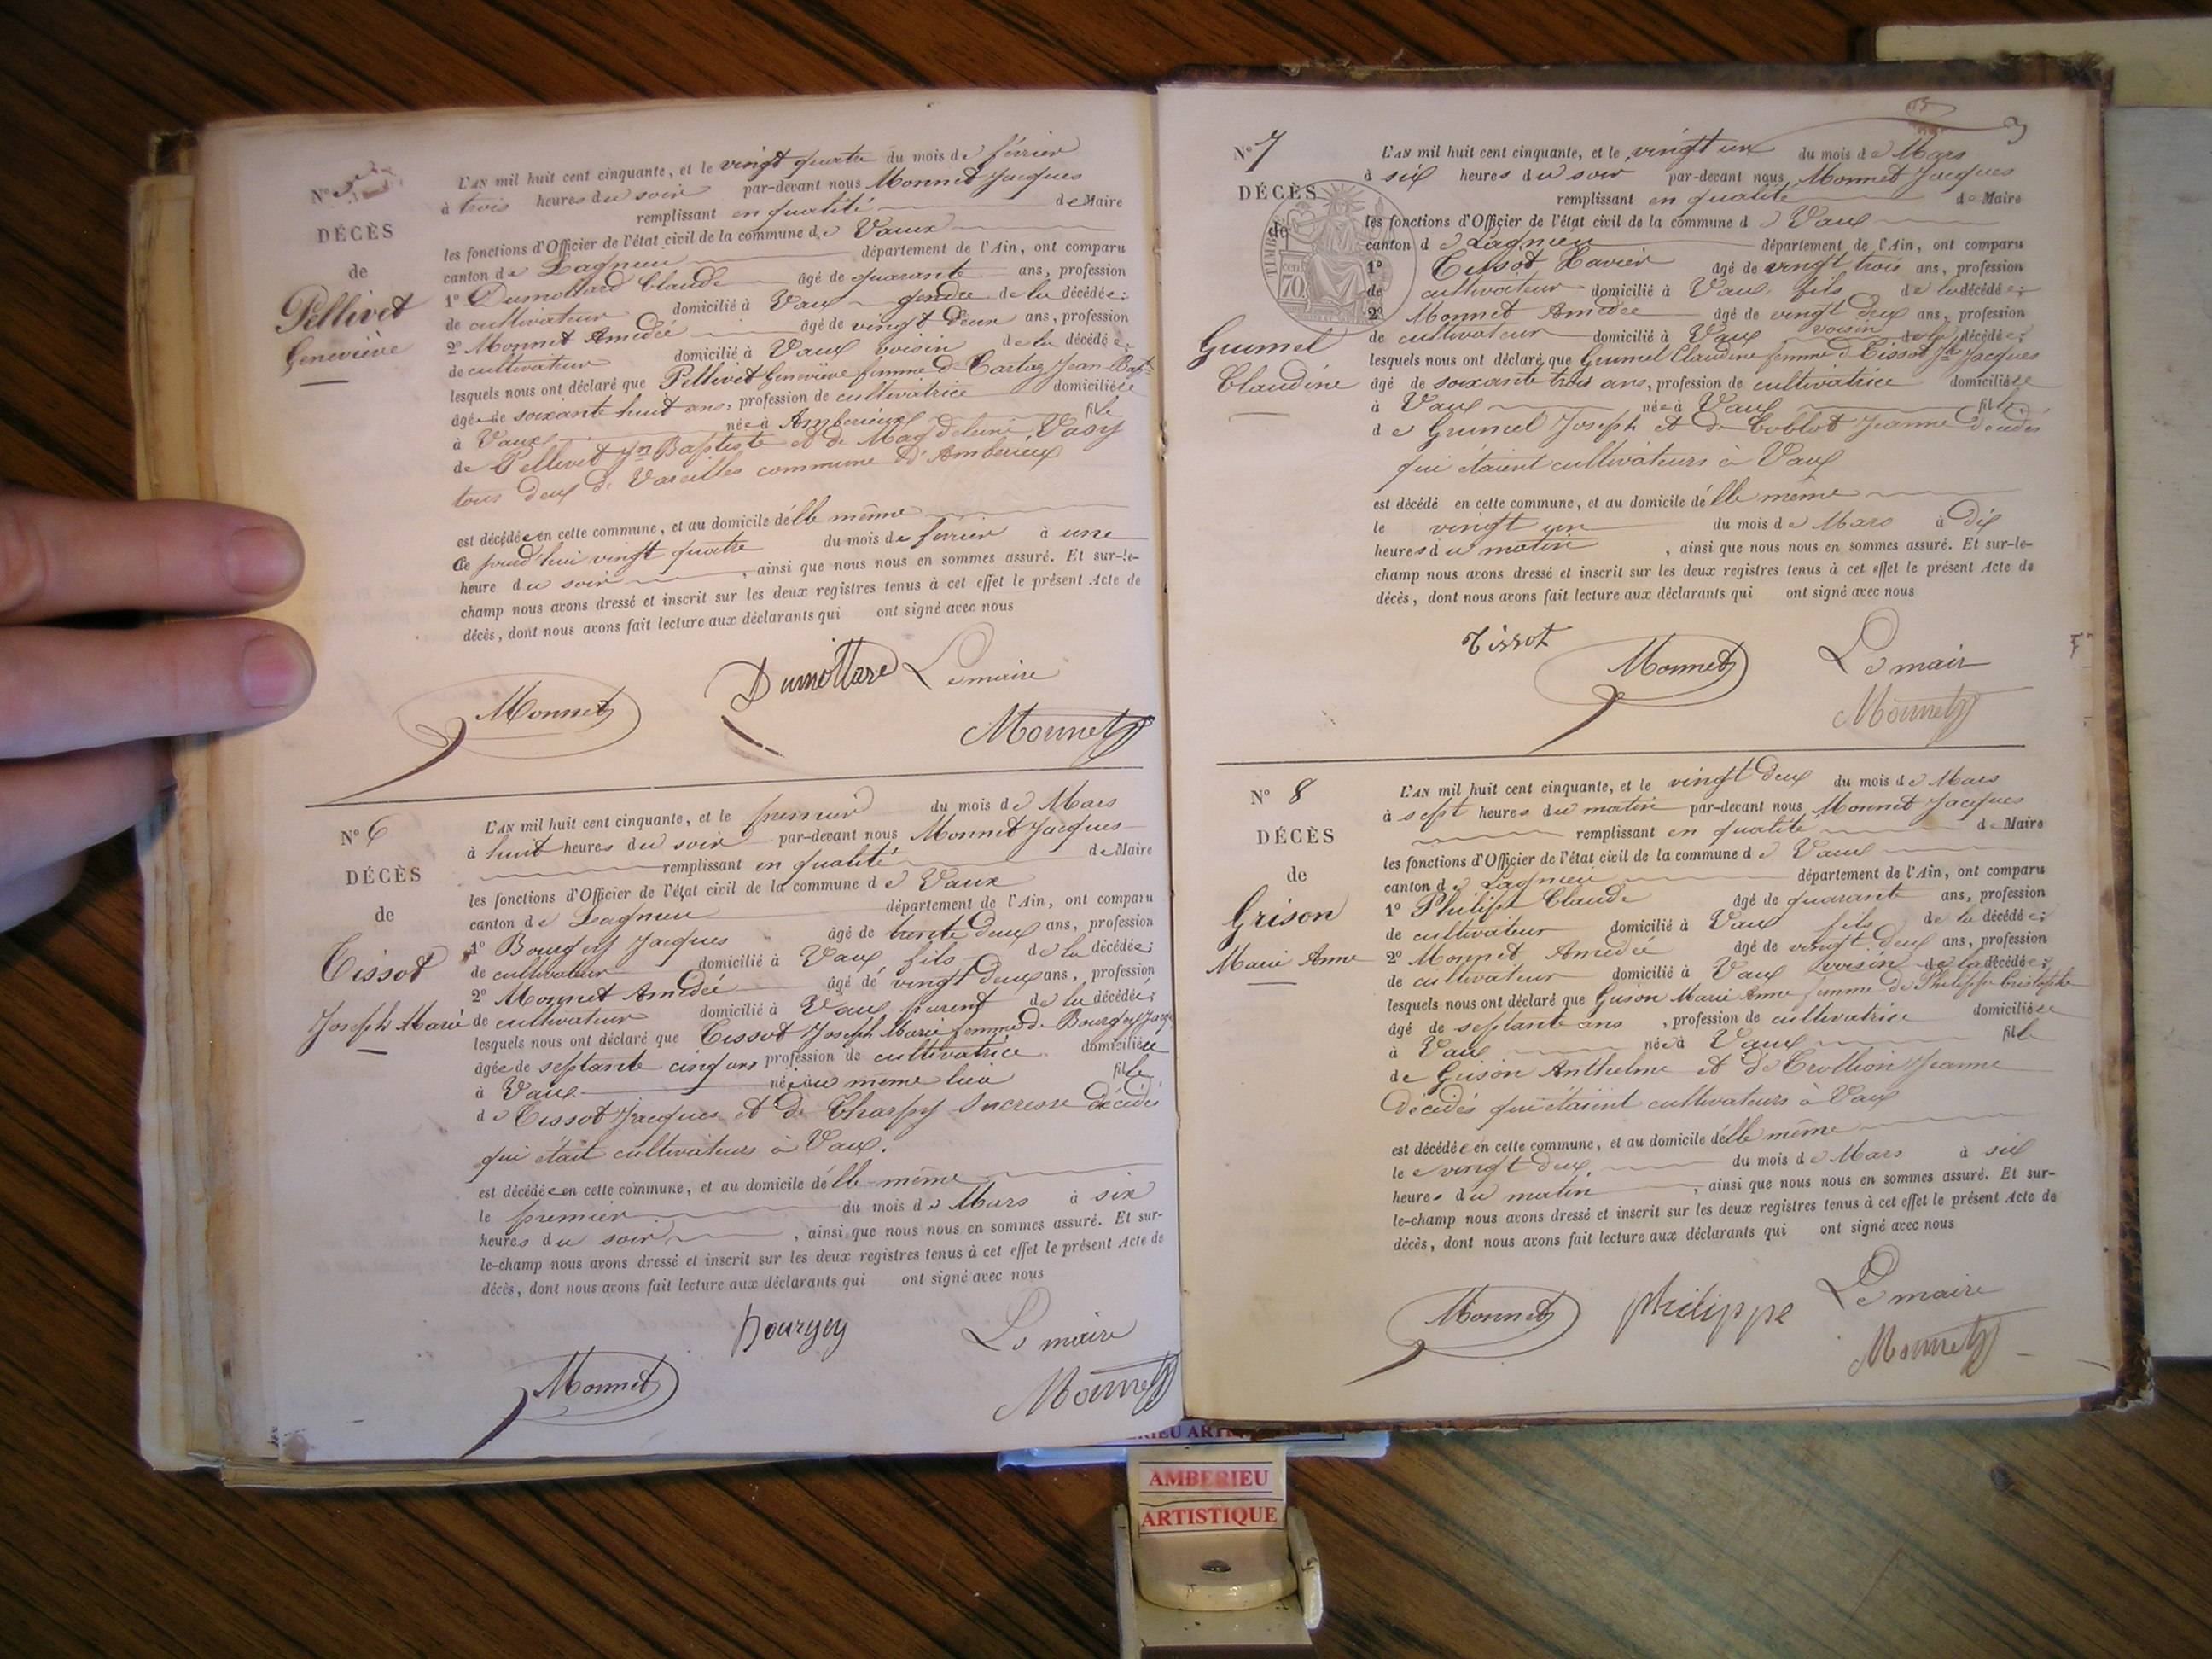 N° 5
DÉCÈS
de
Pellivet
Geneviève
L'AN mil huit cent cinquante, et le vingt quatre du mois de février
à trois heures du soir par-devant nous Monnet Jacques
remplissant en qualité de Maire
les fonctions d'Officier de l'état civil de la commune de Vaux
canton de Lagnieu département de l'Ain, ont comparu
1° Dumollard Claude âgé de quarante ans, profession
de cultivateur domicilié à Vaux gendre de la décédée;
2° Monnet Amédée âgé de vingt deux ans, profession
de cultivateur domicilié à Vaux voisin de la décédée;
lesquels nous ont déclaré que Pellivet Geneviève femme de Cartaz Jean Bapt
âgée de soixante huit ans, profession de cultivatrice domiciliée
à Vaux née à Amberieux fille
de Pellivet Jn Baptiste et de Magdeleine Vasy
tous deux de Vareilles commune d'Amberieux
est décédée en cette commune, et au domicile d'elle même
Ce jourd'hui vingt quatre du mois de février à une
heure du soir, ainsi que nous nous en sommes assuré. Et sur-le-
champ nous avons dressé et inscrit sur les deux registres tenus à cet effet le présent Acte de
décès, dont nous avons fait lecture aux déclarants qui ont signé avec nous
Monnet Dumollard Le maire
Monnet
N° 6
DÉCÈS
de
Tissot
Joseph Marie
L'AN mil huit cent cinquante, et le premier du mois de Mars
à huit heures du soir par-devant nous Monnet Jacques
remplissant en qualité de Maire
les fonctions d'Officier de l'état civil de la commune de Vaux
canton de Lagnieu département de l'Ain, ont comparu
1° Bourgey Jacques âgé de trente deux ans, profession
de cultivateur domicilié à Vaux fils de la décédée;
2° Monnet Amédée âgé de vingt deux ans, profession
de cultivateur domicilié à Vaux parent de la décédée;
lesquels nous ont déclaré que Tissot Joseph Marie femme de Bourgey Jacq
âgée de septante cinq ans profession de cultivatrice domiciliée
à Vaux née au même lieu fille
de Tissot Jacques et de Charpy décédés
qui était cultivateurs à Vaux.
est décédée en cette commune, et au domicile d'elle même
le premier du mois de Mars à six
heures du soir, ainsi que nous nous en sommes assuré. Et sur-
le-champ nous avons dressé et inscrit sur les deux registres tenus à cet effet le présent Acte de
décès, dont nous avons fait lecture aux déclarants qui ont signé avec nous
Bourgey Le maire
Monnet Monnet
N° 7
DÉCÈS
de
Grumel
Claudine
TIMBRE
70
L'AN mil huit cent cinquante, et le vingt un du mois de Mars
à six heures du soir par-devant nous Monnet Jacques
remplissant en qualité de Maire
les fonctions d'Officier de l'état civil de la commune de Vaux
canton de Lagnieu département de l'Ain, ont comparu
1° Tissot Xavier âgé de vingt trois ans, profession
de cultivateur domicilié à Vaux fils de la décédée;
2° Monnet Amédée âgé de vingt deux ans, profession
de cultivateur domicilié à Vaux voisin de la décédée;
lesquels nous ont déclaré que Grumel Claudine femme de Tissot Jn Jacques
âgé de soixante trois ans, profession de cultivatrice domiciliée
à Vaux née à Vaux fille
de Grumel Joseph et de Coblot Jeanne décédés
qui étaient cultivateurs à Vaux
est décédé en cette commune, et au domicile d'elle même
le vingt un du mois de Mars à dix
heures du matin, ainsi que nous nous en sommes assuré. Et sur-le-
champ nous avons dressé et inscrit sur les deux registres tenus à cet effet le présent Acte de
décès, dont nous avons fait lecture aux déclarants qui ont signé avec nous
Tissot Monnet Le mair
Monnet
N° 8
DÉCÈS
de
Grison
Marie Anne
L'AN mil huit cent cinquante, et le vingt deux du mois de Mars
à sept heures du matin par-devant nous Monnet Jacques
remplissant en qualité de Maire
les fonctions d'Officier de l'état civil de la commune de Vaux
canton de Lagnieu département de l'Ain, ont comparu
1° Philippe Claude âgé de quarante ans, profession
de cultivateur domicilié à Vaux fils de la décédée;
2° Monnet Amédée âgé de vingt deux ans, profession
de cultivateur domicilié à Vaux voisin de la décédée;
lesquels nous ont déclaré que Grison Marie Anne femme de Philippe Cristophe
âgé de septante ans, profession de cultivatrice domiciliée
à Vaux née à Vaux fille
de Grison Anthelme et de Trollion Jeanne
décédés qui étaient cultivateurs à Vaux
est décédée en cette commune, et au domicile d'elle même
le vingt deux du mois de Mars à six
heures du matin, ainsi que nous nous en sommes assuré. Et sur-
le-champ nous avons dressé et inscrit sur les deux registres tenus à cet effet le présent Acte de
décès, dont nous avons fait lecture aux déclarants qui ont signé avec nous
Monnet philippe Le maire
Monnet
AMBERIEU
ARTISTIQUE